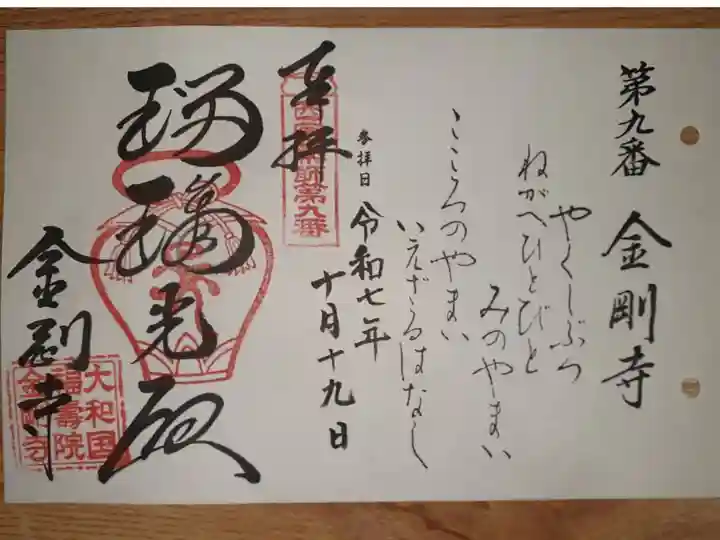 第九番 金剛寺
やくしぶつ
ねがへひとびと
みのやまい
こころのやまい
いえざるはなし
参拝日 令和七年
十月十九日
奉拝
西国薬師第九番
瑠璃光殿
金剛寺
大和国
福壽院
金剛寺